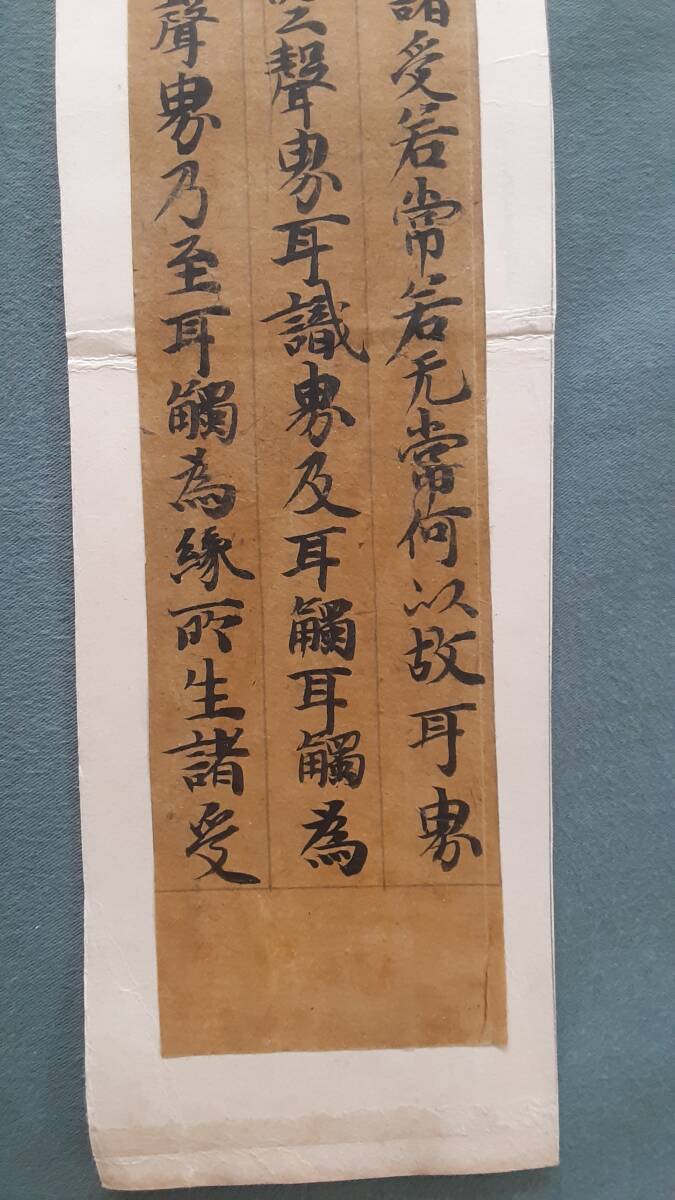 諸受若常若无常何以故耳界
之聲界耳識界及耳觸耳觸為
聲界乃至耳觸為緣所生諸受